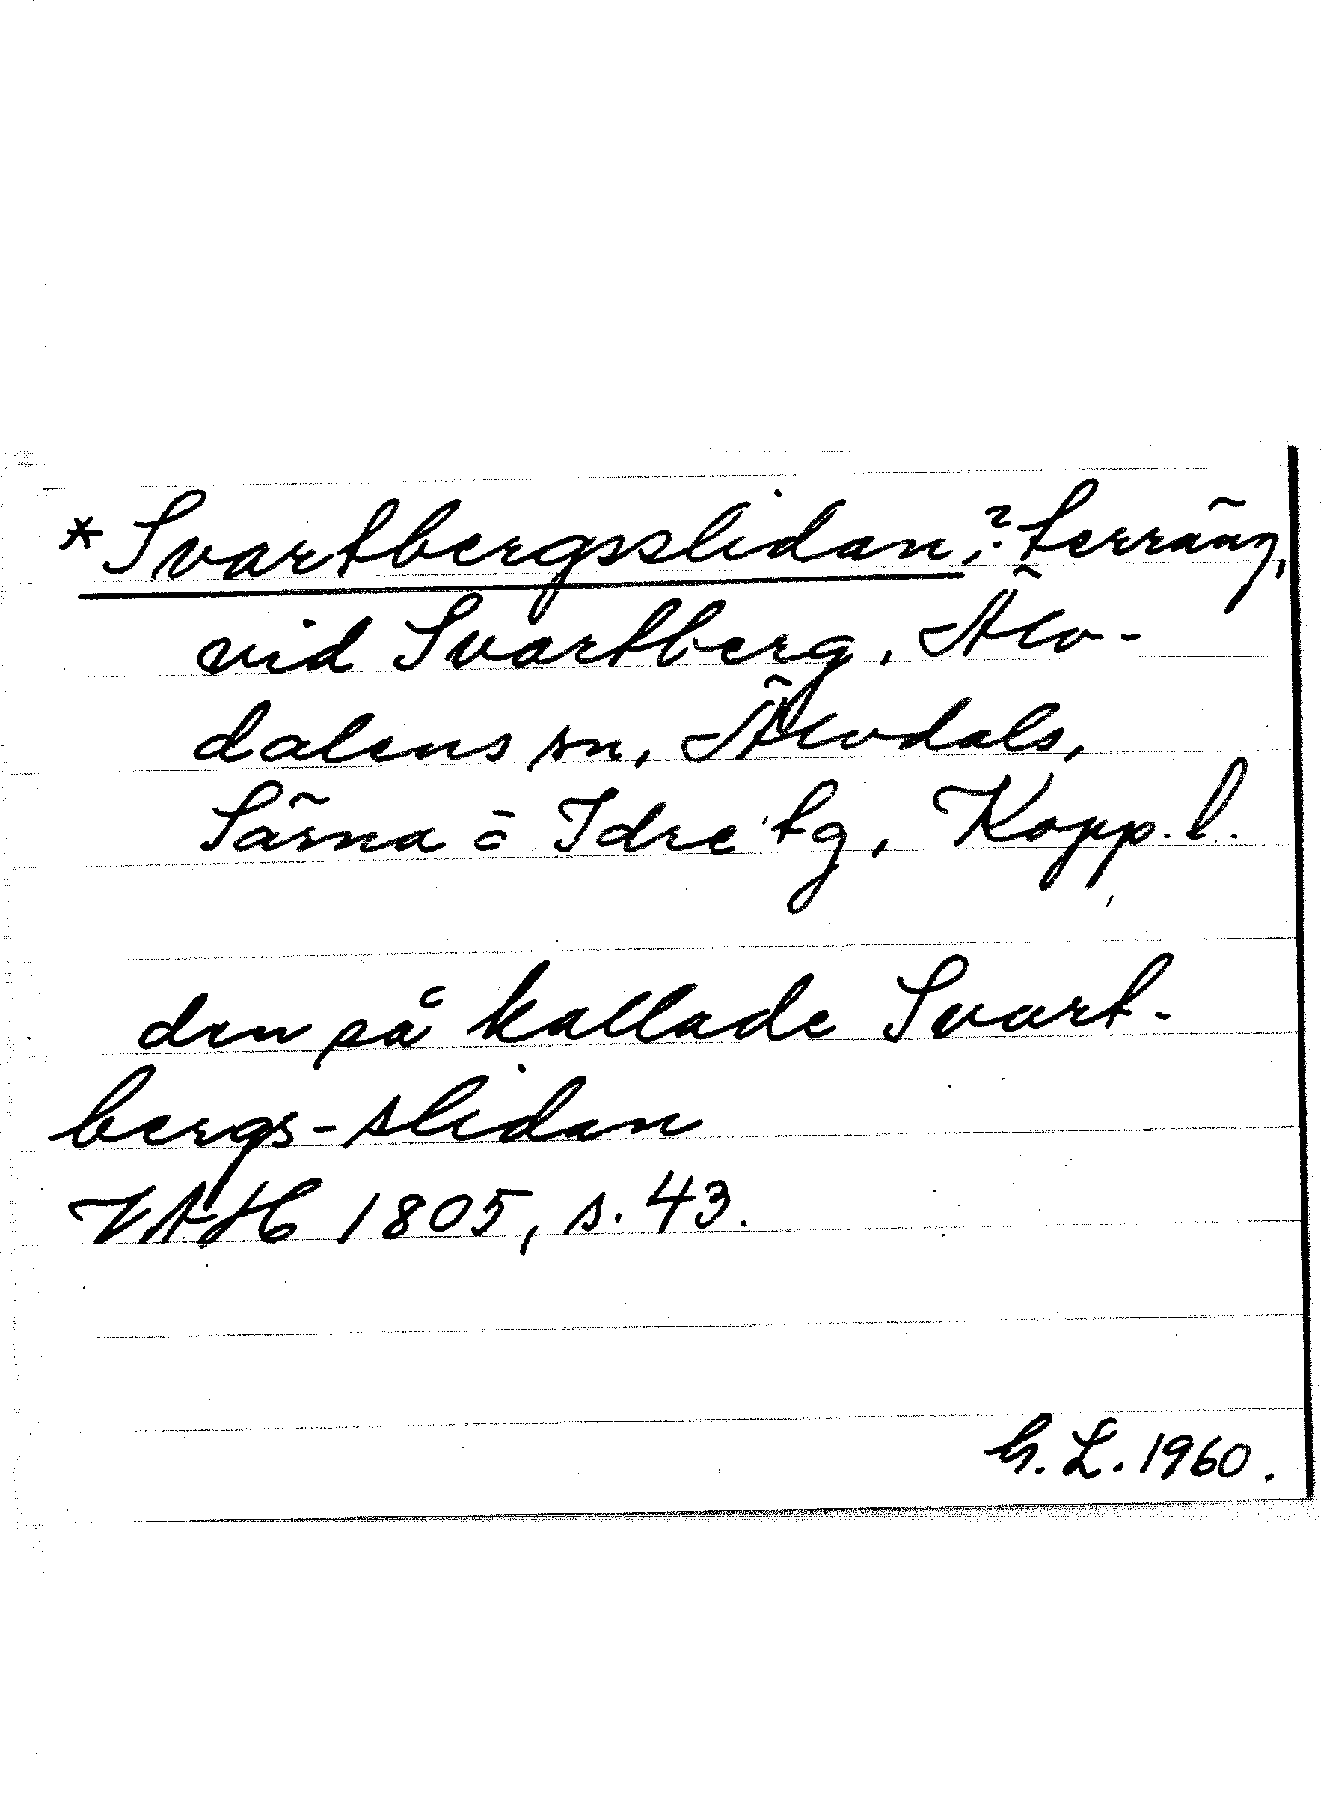 *Svartbergsslidan, ? terräng,
vid Svartberg, Älv-
dalens sn, Älvdals,
Särna o Idre tg, Kopp. l.
den så kallade Svart-
bergs-slidan
VAH 1805, s. 43.
G. L. 1960.